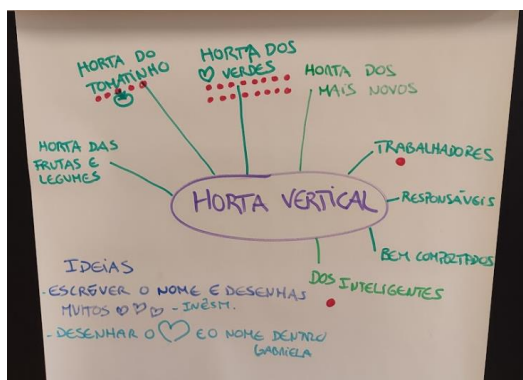 HORTA DO
TOMATINHO
HORTA DOS
♡ VERDES
HORTA DOS
MAIS NOVOS
HORTA DAS
FRUTAS E
LEGUMES
HORTA VERTICAL
TRABALHADORES
RESPONSÁVEIS
BEM COMPORTADOS
DOS INTELIGENTES
IDEIAS
- ESCREVER O NOME E DESENHAS
MUITOS ♡ ♡ ♡ - INÊS M.
- DESENHAR O ♡ E O NOME DENTRO
GABRIELA